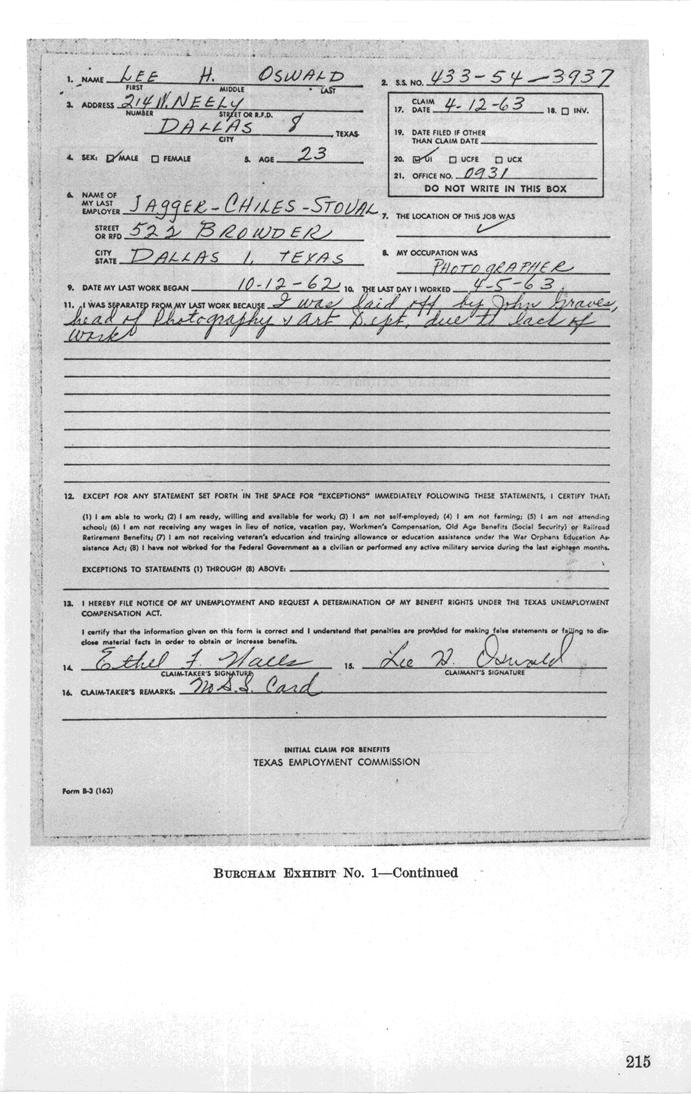 1. NAME LEE H. OSWALD 2. S.S. NO. 433-54-3937
FIRST MIDDLE LAST
3. ADDRESS 214 W. NEELY
NUMBER STREET OR R.F.D.
DALLAS 8 TEXAS
CITY
17. CLAIM DATE 4-12-63 18. ☐ INV.
19. DATE FILED IF OTHER
THAN CLAIM DATE
4. SEX: ☑ MALE ☐ FEMALE 5. AGE 23
20. ☑ UI ☐ UCFE ☐ UCX
21. OFFICE NO. 0931
DO NOT WRITE IN THIS BOX
6. NAME OF
MY LAST
EMPLOYER JAGGER-CHILES-STOVAL
7. THE LOCATION OF THIS JOB WAS
✓
STREET
OR RFD 522 BROWDER
CITY
STATE DALLAS 1, TEXAS
8. MY OCCUPATION WAS
PHOTOGRAPHER
9. DATE MY LAST WORK BEGAN 10-12-62 10. THE LAST DAY I WORKED 4-5-63
11. I WAS SEPARATED FROM MY LAST WORK BECAUSE I was laid off by John Graves,
head of Photography & Art Dept, due to lack of
work
12. EXCEPT FOR ANY STATEMENT SET FORTH IN THE SPACE FOR "EXCEPTIONS" IMMEDIATELY FOLLOWING THESE STATEMENTS, I CERTIFY THAT:
(1) I am able to work; (2) I am ready, willing and available for work; (3) I am not self-employed; (4) I am not farming; (5) I am not attending
school; (6) I am not receiving any wages in lieu of notice, vacation pay, Workmen's Compensation, Old Age Benefits (Social Security) or Railroad
Retirement Benefits; (7) I am not receiving veteran's education and training allowance or education assistance under the War Orphans Education As-
sistance Act; (8) I have not worked for the Federal Government as a civilian or performed any active military service during the last eighteen months.
EXCEPTIONS TO STATEMENTS (1) THROUGH (8) ABOVE:
13. I HEREBY FILE NOTICE OF MY UNEMPLOYMENT AND REQUEST A DETERMINATION OF MY BENEFIT RIGHTS UNDER THE TEXAS UNEMPLOYMENT
COMPENSATION ACT.
I certify that the information given on this form is correct and I understand that penalties are provided for making false statements or failing to dis-
close material facts in order to obtain or increase benefits.
14. Ethel F. Nalls 15. Lee H. Oswald
CLAIM-TAKER'S SIGNATURE CLAIMANT'S SIGNATURE
16. CLAIM-TAKER'S REMARKS: No S.S. Card
INITIAL CLAIM FOR BENEFITS
TEXAS EMPLOYMENT COMMISSION
Form B-3 (163)
BURCHAM EXHIBIT No. 1—Continued
215